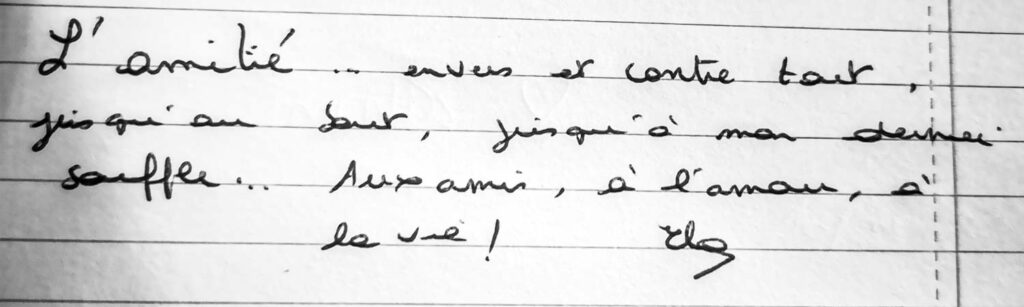 L'amitié... envers et contre tout,
jusqu'au bout, jusqu'à mon dernier
souffle... Aux amis, à l'amour, à
la vie !